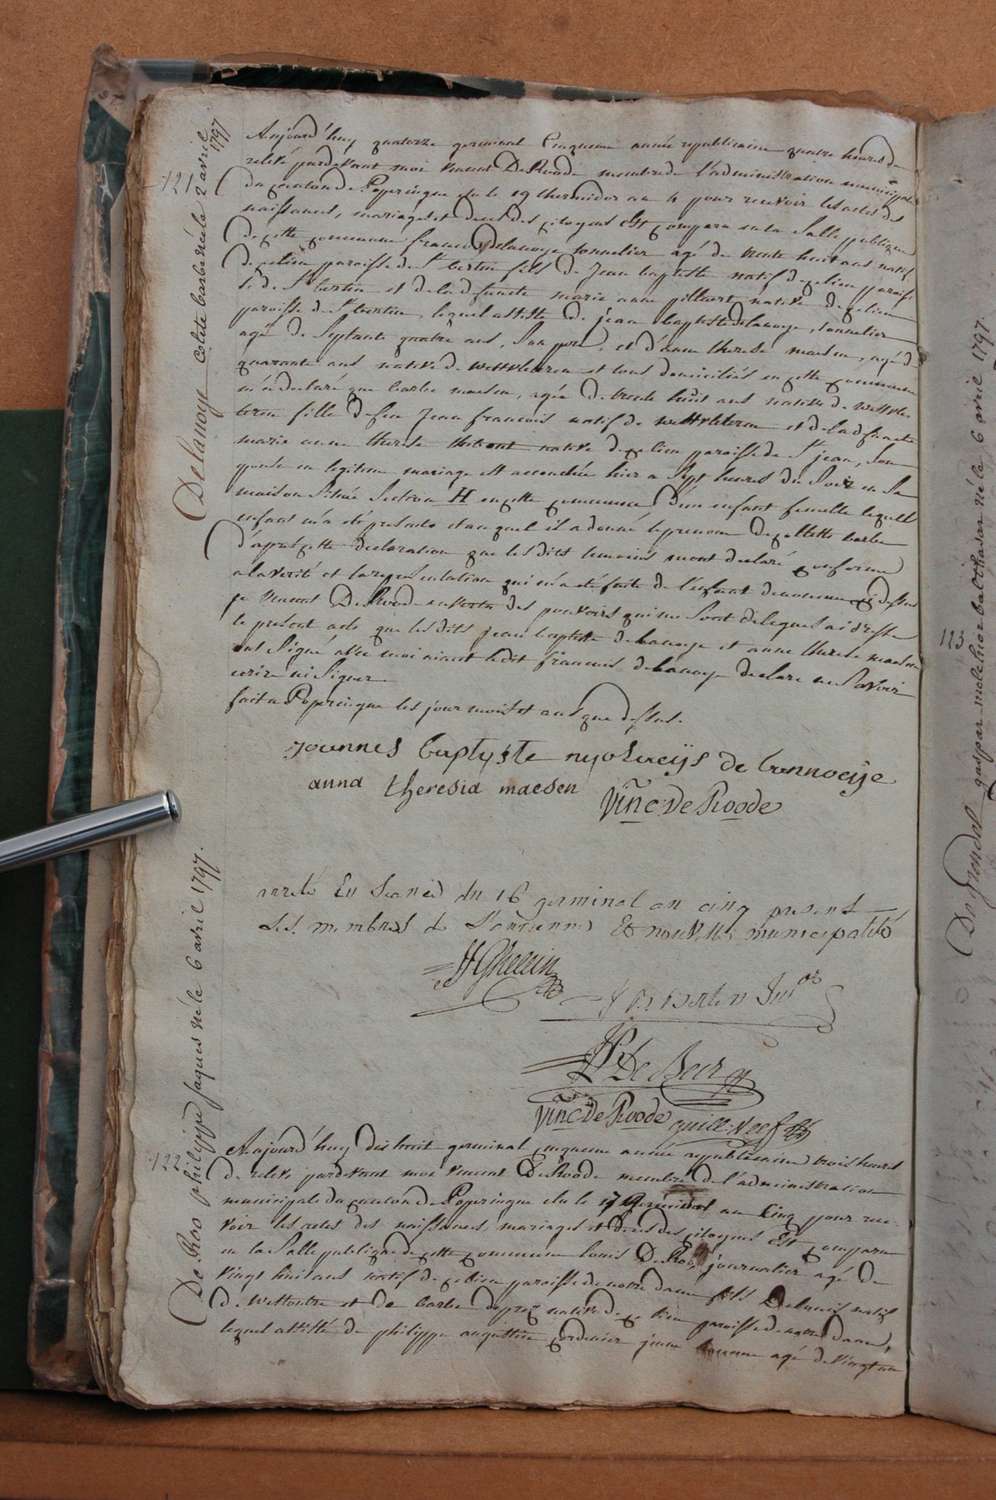 121
Delanoye Colette barbe née le 2 avril 1797
Aujourd'huy quatorze germinal Cinquieme année republicaine quatre heures de
relevé pardevant moi Vincent DeRoode membre de l'administration municipale
du canton de Poperingue elu le 19 thermidor an 4 pour recevoir les actes des
naissances, mariages et deces des citoyens Est comparu en la Salle publique
de cette commune francois delanoye tonnelier agé de trente huit ans natif
de ce lieu paroisse de St bertin fils de Jean baptiste natif de ce lieu parois-
se de St bertin et de la defuncte marie anne pillaert native de ce lieu
paroisse de St bertin, lequel assisté de jean baptiste delanoye, tonnelier
agé de Septante quatre ans, Son pere, et d'anne therese maesen, agée de
quarante ans native de westvleteren et tous domiciliés en cette commune
m'a declaré que barbe maesen, agée de trente huit ans native de westvle-
teren fille de feu Jean francois natif de westvleteren et de la defuncte
marie anne therese native de ce lieu paroisse de St jean, Son
epouse en legitime mariage est accouchée hier a Sept heures du Soir en Sa
maison Située Section H en cette commune d'un enfant femelle lequel
enfant m'a eté presenté et auquel il a donné le prenom de collette barbe
d'apres cette declaration que les dits temoins m'ont declaré conforme
a la verité et la representation qui m'a eté faite de l'enfant denommé ci dessus
je Vincent DeRoode en vertu des pouvoirs qui me Sont delegués ai dressé
le present acte que les dits jean baptiste delanoye et anne therese maesen
ont Signé avec moi aiant ledit francois delanoye declaré ne Savoir
ecrire ni Signer
fait a Poperingue les jour mois et an que dessus.
joannes baptyste de lannoeije
anna theresia maesen
Vinc: De Roode
arreté En Seance du 16 germinal an cinq present
les membres de l'ancienne Et nouvelle municipalité
Ghelein
De Beir
Vinc: De Roode
122
De Roo philippe Jaques né le 6 avril 1797.
Aujourd'huy dix huit germinal cinquieme année republicaine trois heures
de relevé pardevant moi Vincent DeRoode membre de l'administration
municipale du canton de Poperingue elu le 17 Germinal an Cinq pour rece-
voir les actes des naissances mariages et deces des citoyens Est comparu
en la Salle publique de cette commune Louis De Roo, journalier agé de
vingt huit ans natif de ce lieu paroisse de notre dame fils De Louis natif
de Westoutre et de barbe deprez native de ce lieu paroisse de notre dame,
lequel assisté de philippe augustin cordonier jeune homme agé de vingt un
123
De Grendel gaspar melchior balthasar né le 6 avril 1797.